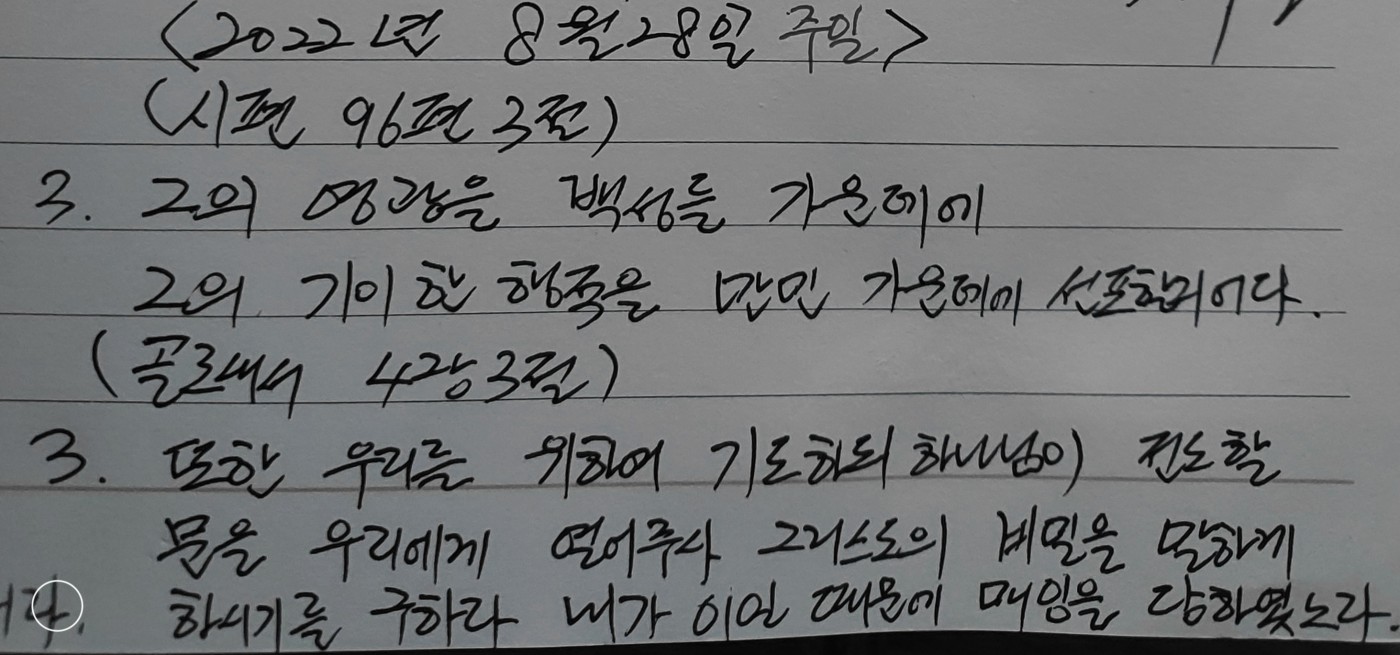 <2022년 8월 28일 주일>
(시편 96편 3절)
3. 그의 영광을 백성들 가운데에
그의 기이한 행적을 만민 가운데에 선포할지어다.
(골로새서 4장 3절)
3. 또한 우리를 위하여 기도하되 하나님이 전도할
문을 우리에게 열어주사 그리스도의 비밀을 말하게
하시기를 구하라 내가 이일 때문에 매임을 당하였노라.
다.